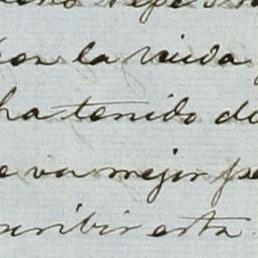 con la viuda
ha tenido de
e va mejor pe
scribir esta